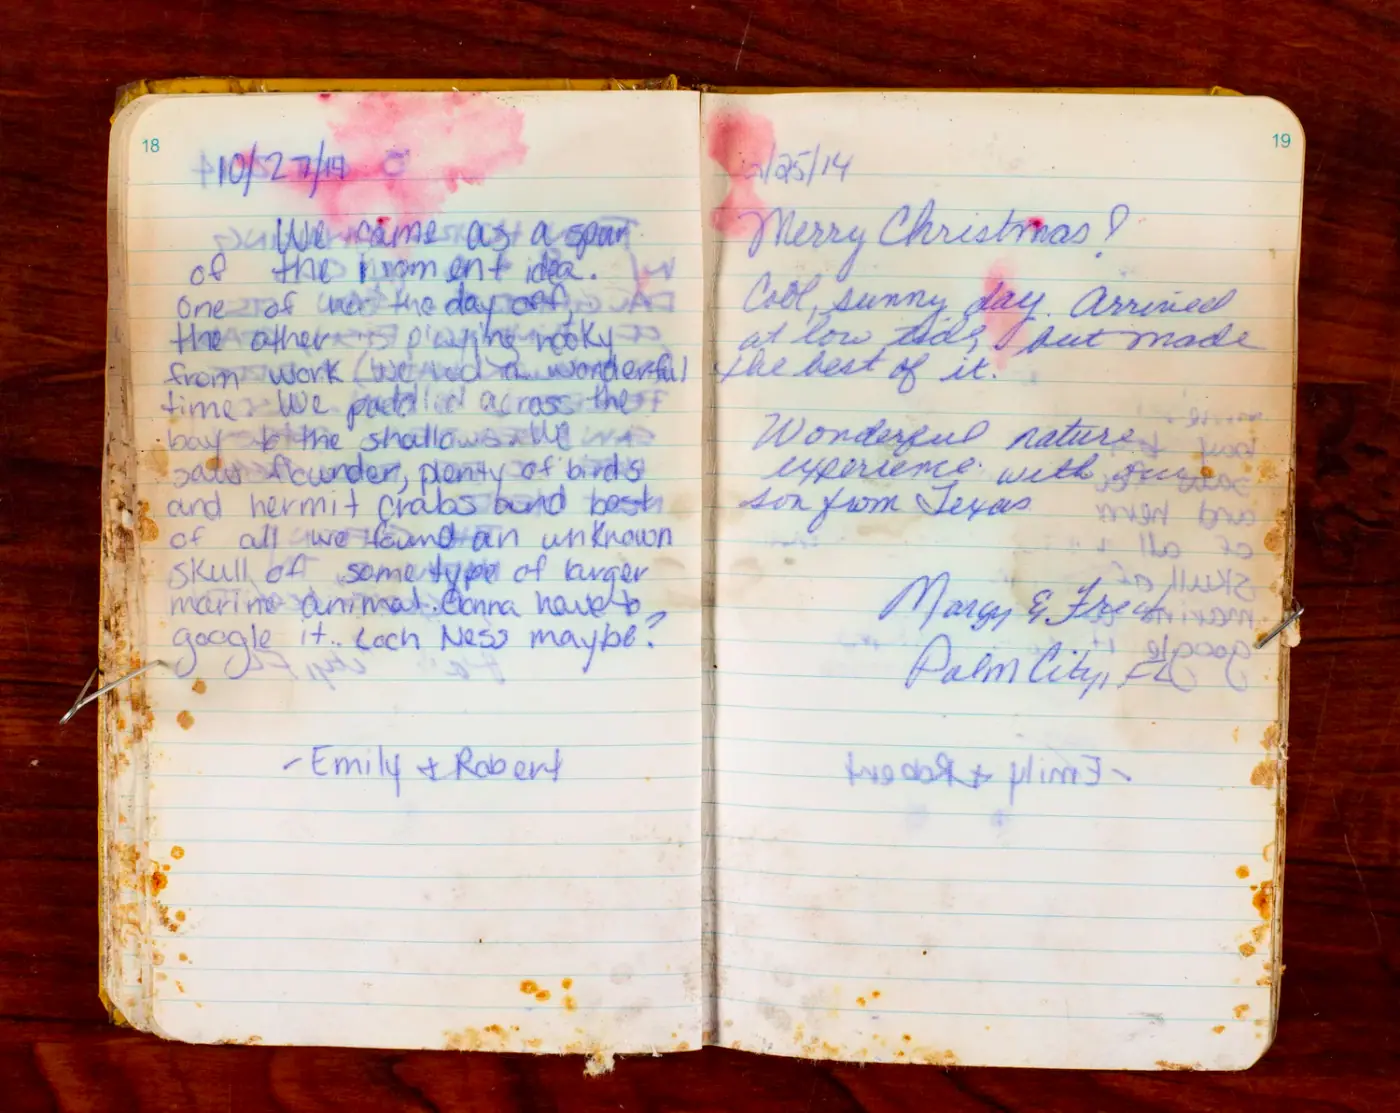 18
10/27/14
We came as a spur
of the moment idea.
One of has the day off,
the other is playing hooky
from work (We had a wonderful
time. We paddled across the
bay to the shallows. We
saw flounder, plenty of birds
and hermit crabs and best
of all we found an unknown
skull of some type of larger
marine animal. Gonna have to
google it. Loch Ness maybe?
- Emily + Robert
19
/25/14
Merry Christmas!
Cool, sunny day. Arrived
at low tide, but made
the best of it.
Wonderful nature
experience with our
son from Texas
Margy & Fred
Palm City, FL